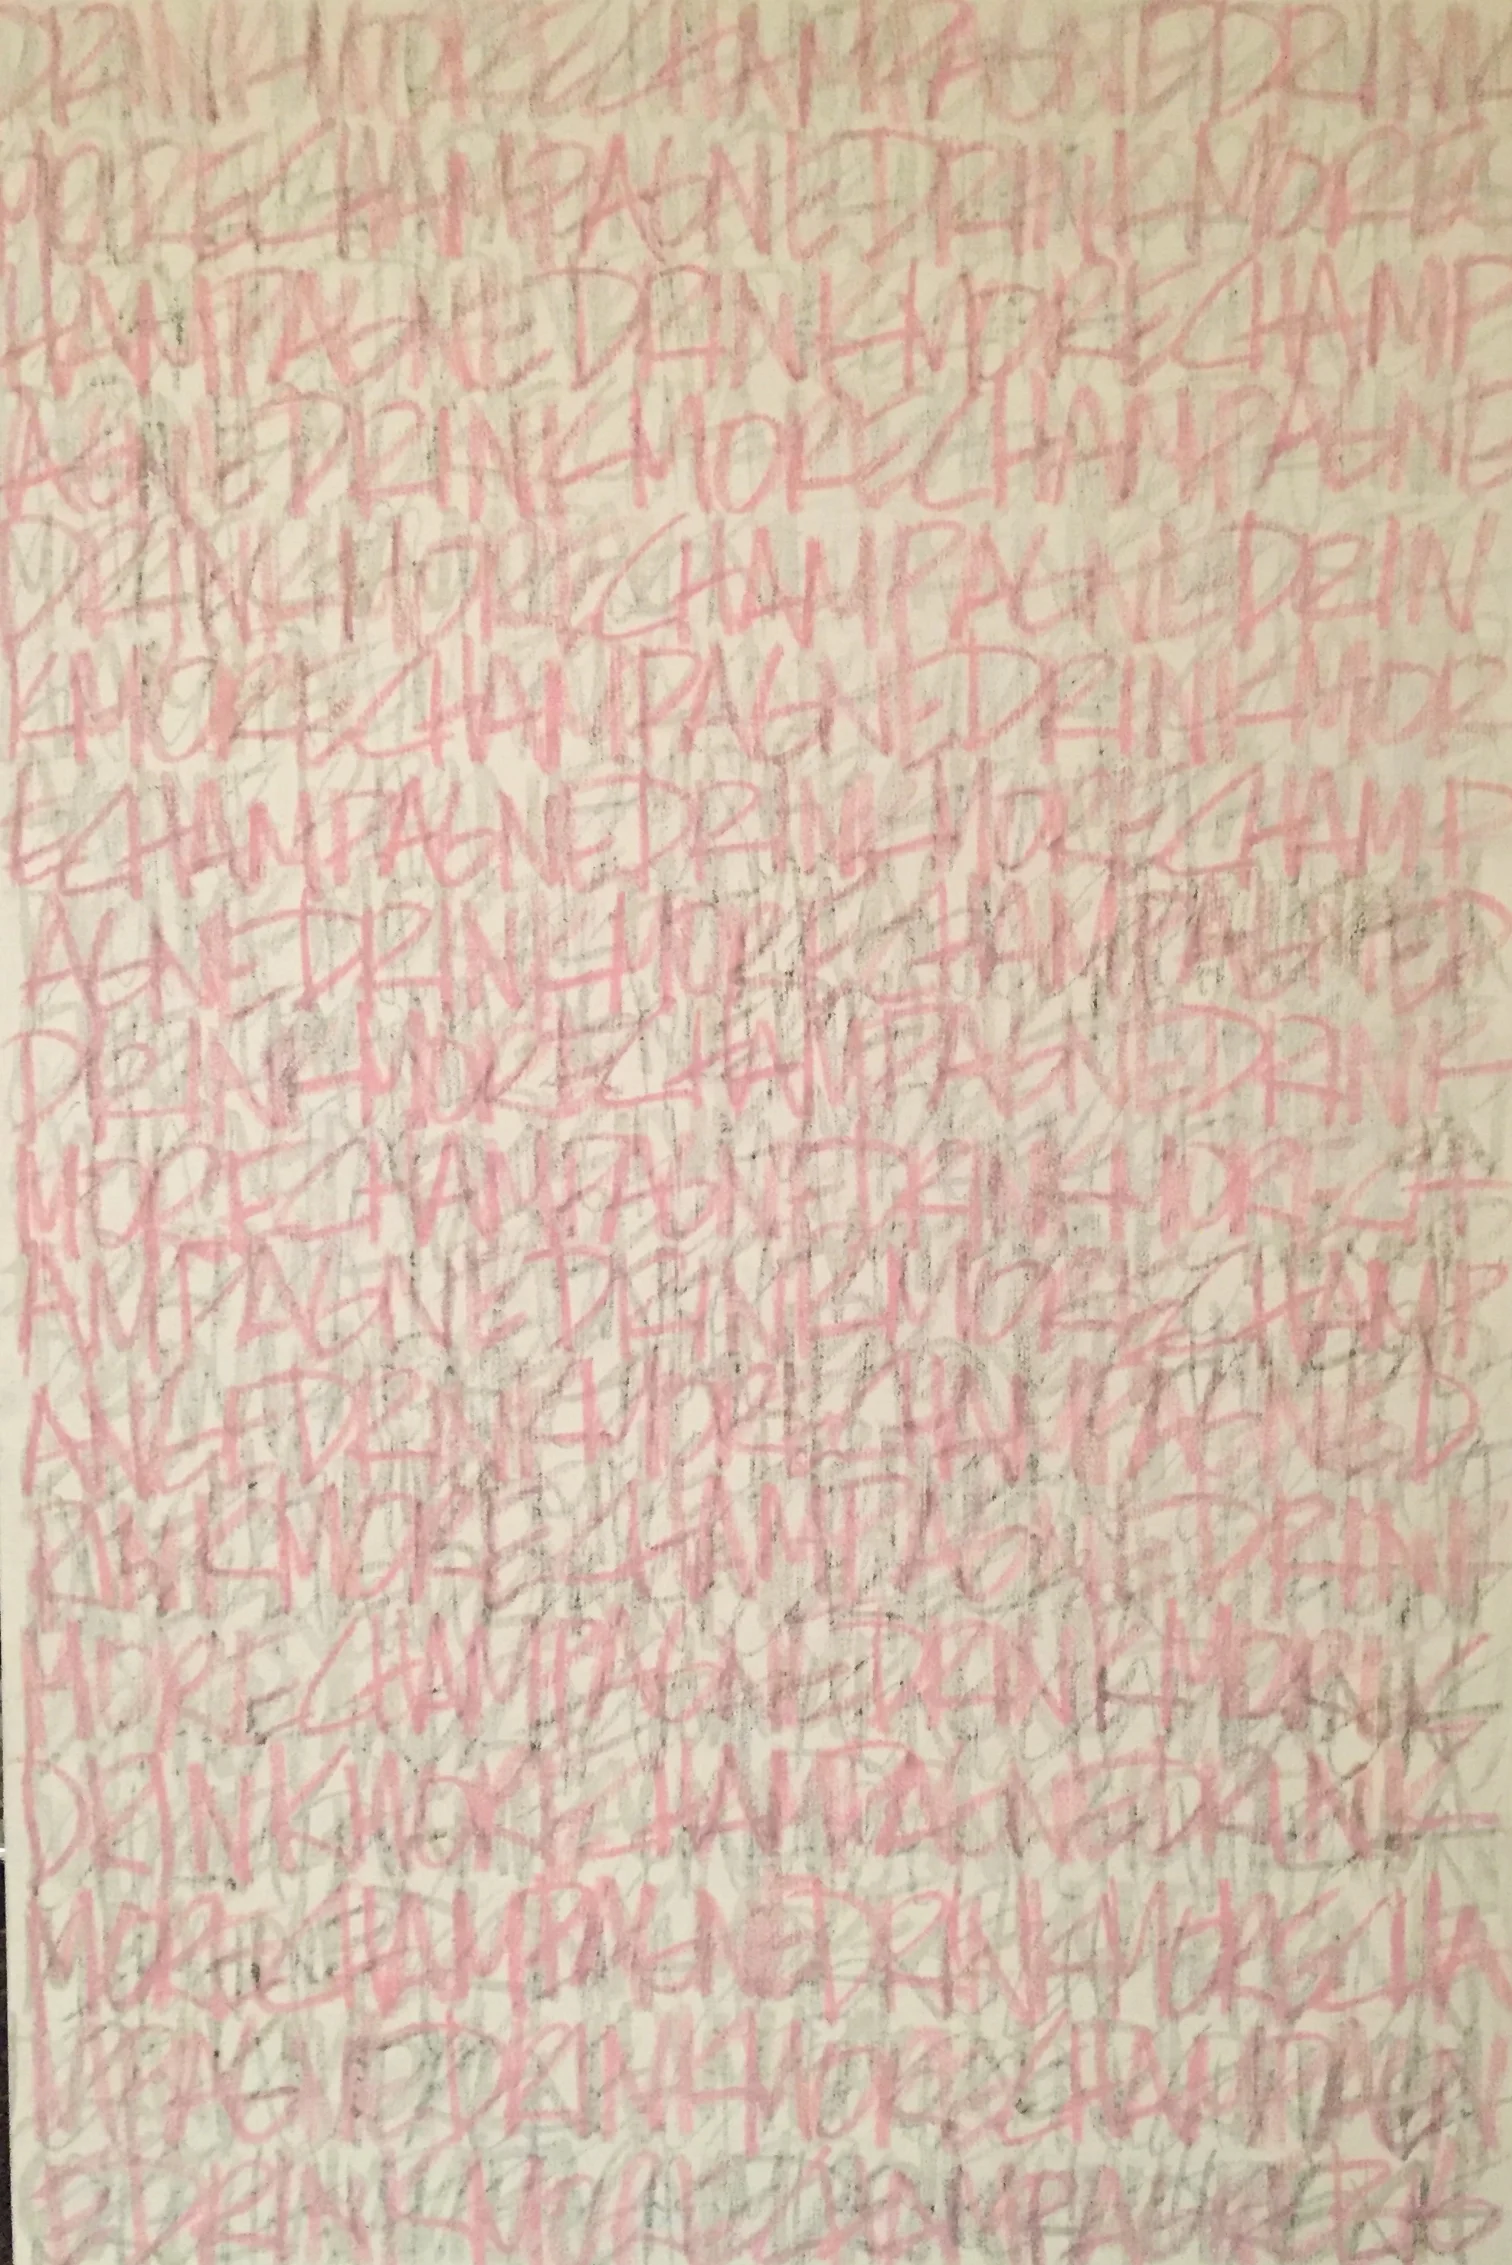 DRINKMORECHAMPAGNEDRINK
MORECHAMPAGNEDRINKMOREC
HAMPAGNEDRINKMORECHAMP
AGNEDRINKMORECHAMPAGNE
DRINKMORECHAMPAGNEDRIN
KMORECHAMPAGNEDRINKMOR
ECHAMPAGNEDRINKMORECHAMP
AGNEDRINKMORECHAMPAGNED
DRINKMORECHAMPAGNEDRINK
MORECHAMPAGNEDRINKMORECH
AMPAGNEDRINKMORECHAMP
ANGEDRINKMORECHAMPAGNED
RINKMORECHAMPAGNEDRINK
MORECHAMPAGNEDRINKMORINK
DRINKMORECHAMPAGNEDRINK
MORECHAMPAGNEDRINKMORECHA
MPAGNEDRINKMORECHAMPAGN
EDRINKMORE